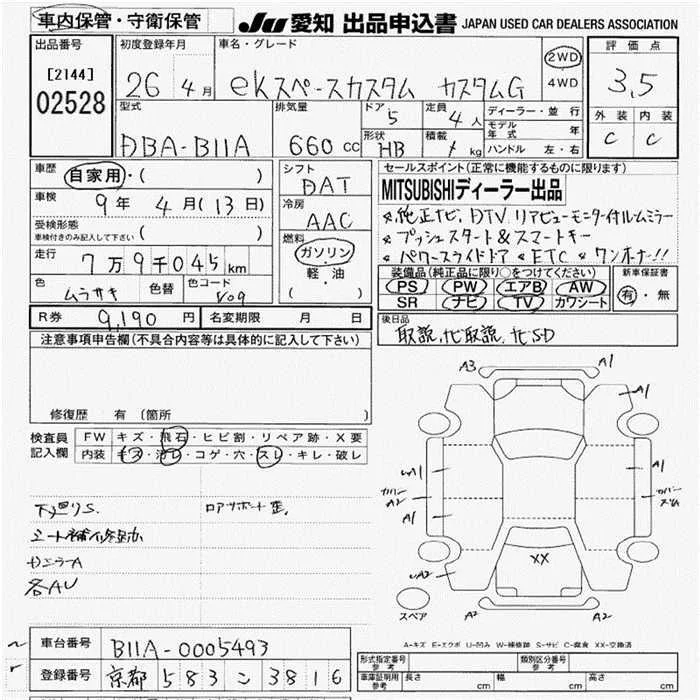 車内保管・守衛保管
JU 愛知 出品申込書 JAPAN USED CAR DEALERS ASSOCIATION
出品番号
[2144]
02528
初度登録年月
26年 4月
車名・グレード
ekスペースカスタム カスタムG
2WD
4WD
評価点
3.5
外装 内装
C C
型式
DBA-B11A
排気量
660 cc
ドア
5
形状
HB
定員
4人
積載
kg
ディーラー・並行
モデル年式 年
ハンドル 左・右
車歴
自家用・( )
車検
9年 4月(13日)
受検形態
車検付きのみ記入して下さい ( )
走行
7万9千045km
色 ムラサキ 色替 色コード
シフト
DAT
冷房
AAC
燃料
ガソリン
軽・油
( )
セールスポイント(正常に機能するものに限ります)
MITSUBISHIディーラー出品
純正ナビ、DTV リアビューモニター付ルムミラー
プッシュスタート&スマートキー
パワースライドドア ETC ワンオーナー!!
装備品(純正品に限り○をつけてください) 新車保証書
PS PW エアB AW
SR ナビ TV カワシート
有・無
R券 9,190円 名変期限 月 日
後日品
取説、ナビ取説、ナビSD
注意事項申告欄(不具合内容等は具体的に記入して下さい)
修復歴 有 (箇所 )
検査員記入欄
FW キズ・飛石・ヒビ割・リペア跡・X要
内装 キズ・汚レ・コゲ・穴・スレ・キレ・破レ
下廻りS.
各AU
A3 A1
A1
A1
A2
A1
カバースリム
XX
A2
A2 A2
スペア
A-キズ E-エクボ U-凹み W-補修跡 S-サビ C-腐食 XX-交換済
車台番号 B11A-0005493
登録番号 京都 583 こ 3816
形式指定番号 参考 類別区分番号 参考
車庫証明用 参考 長さ cm 幅 cm 高さ cm